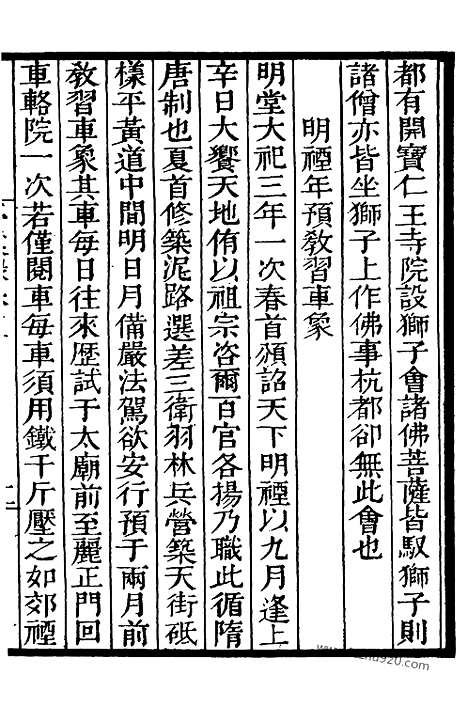 都有開寶仁王寺院設獅子會諸佛菩薩皆馭獅子則
諸僧亦皆坐獅子上作佛事杭都卻無此會也
明禋年預教習車象
明堂大祀三年一次春首頒詔天下明禋以九月逢上
辛日大饗天地侑以祖宗咨爾百官各揚乃職此循隋
唐制也夏首修築泥路選差三衛羽林兵營築天街砥
樣平黃道中間明日月備嚴法駕欲安行預于兩月前
教習車象其車每日往來歷試于太廟前至麗正門回
車輅院一次若僅閱車每車須用鐵千斤壓之如郊禋